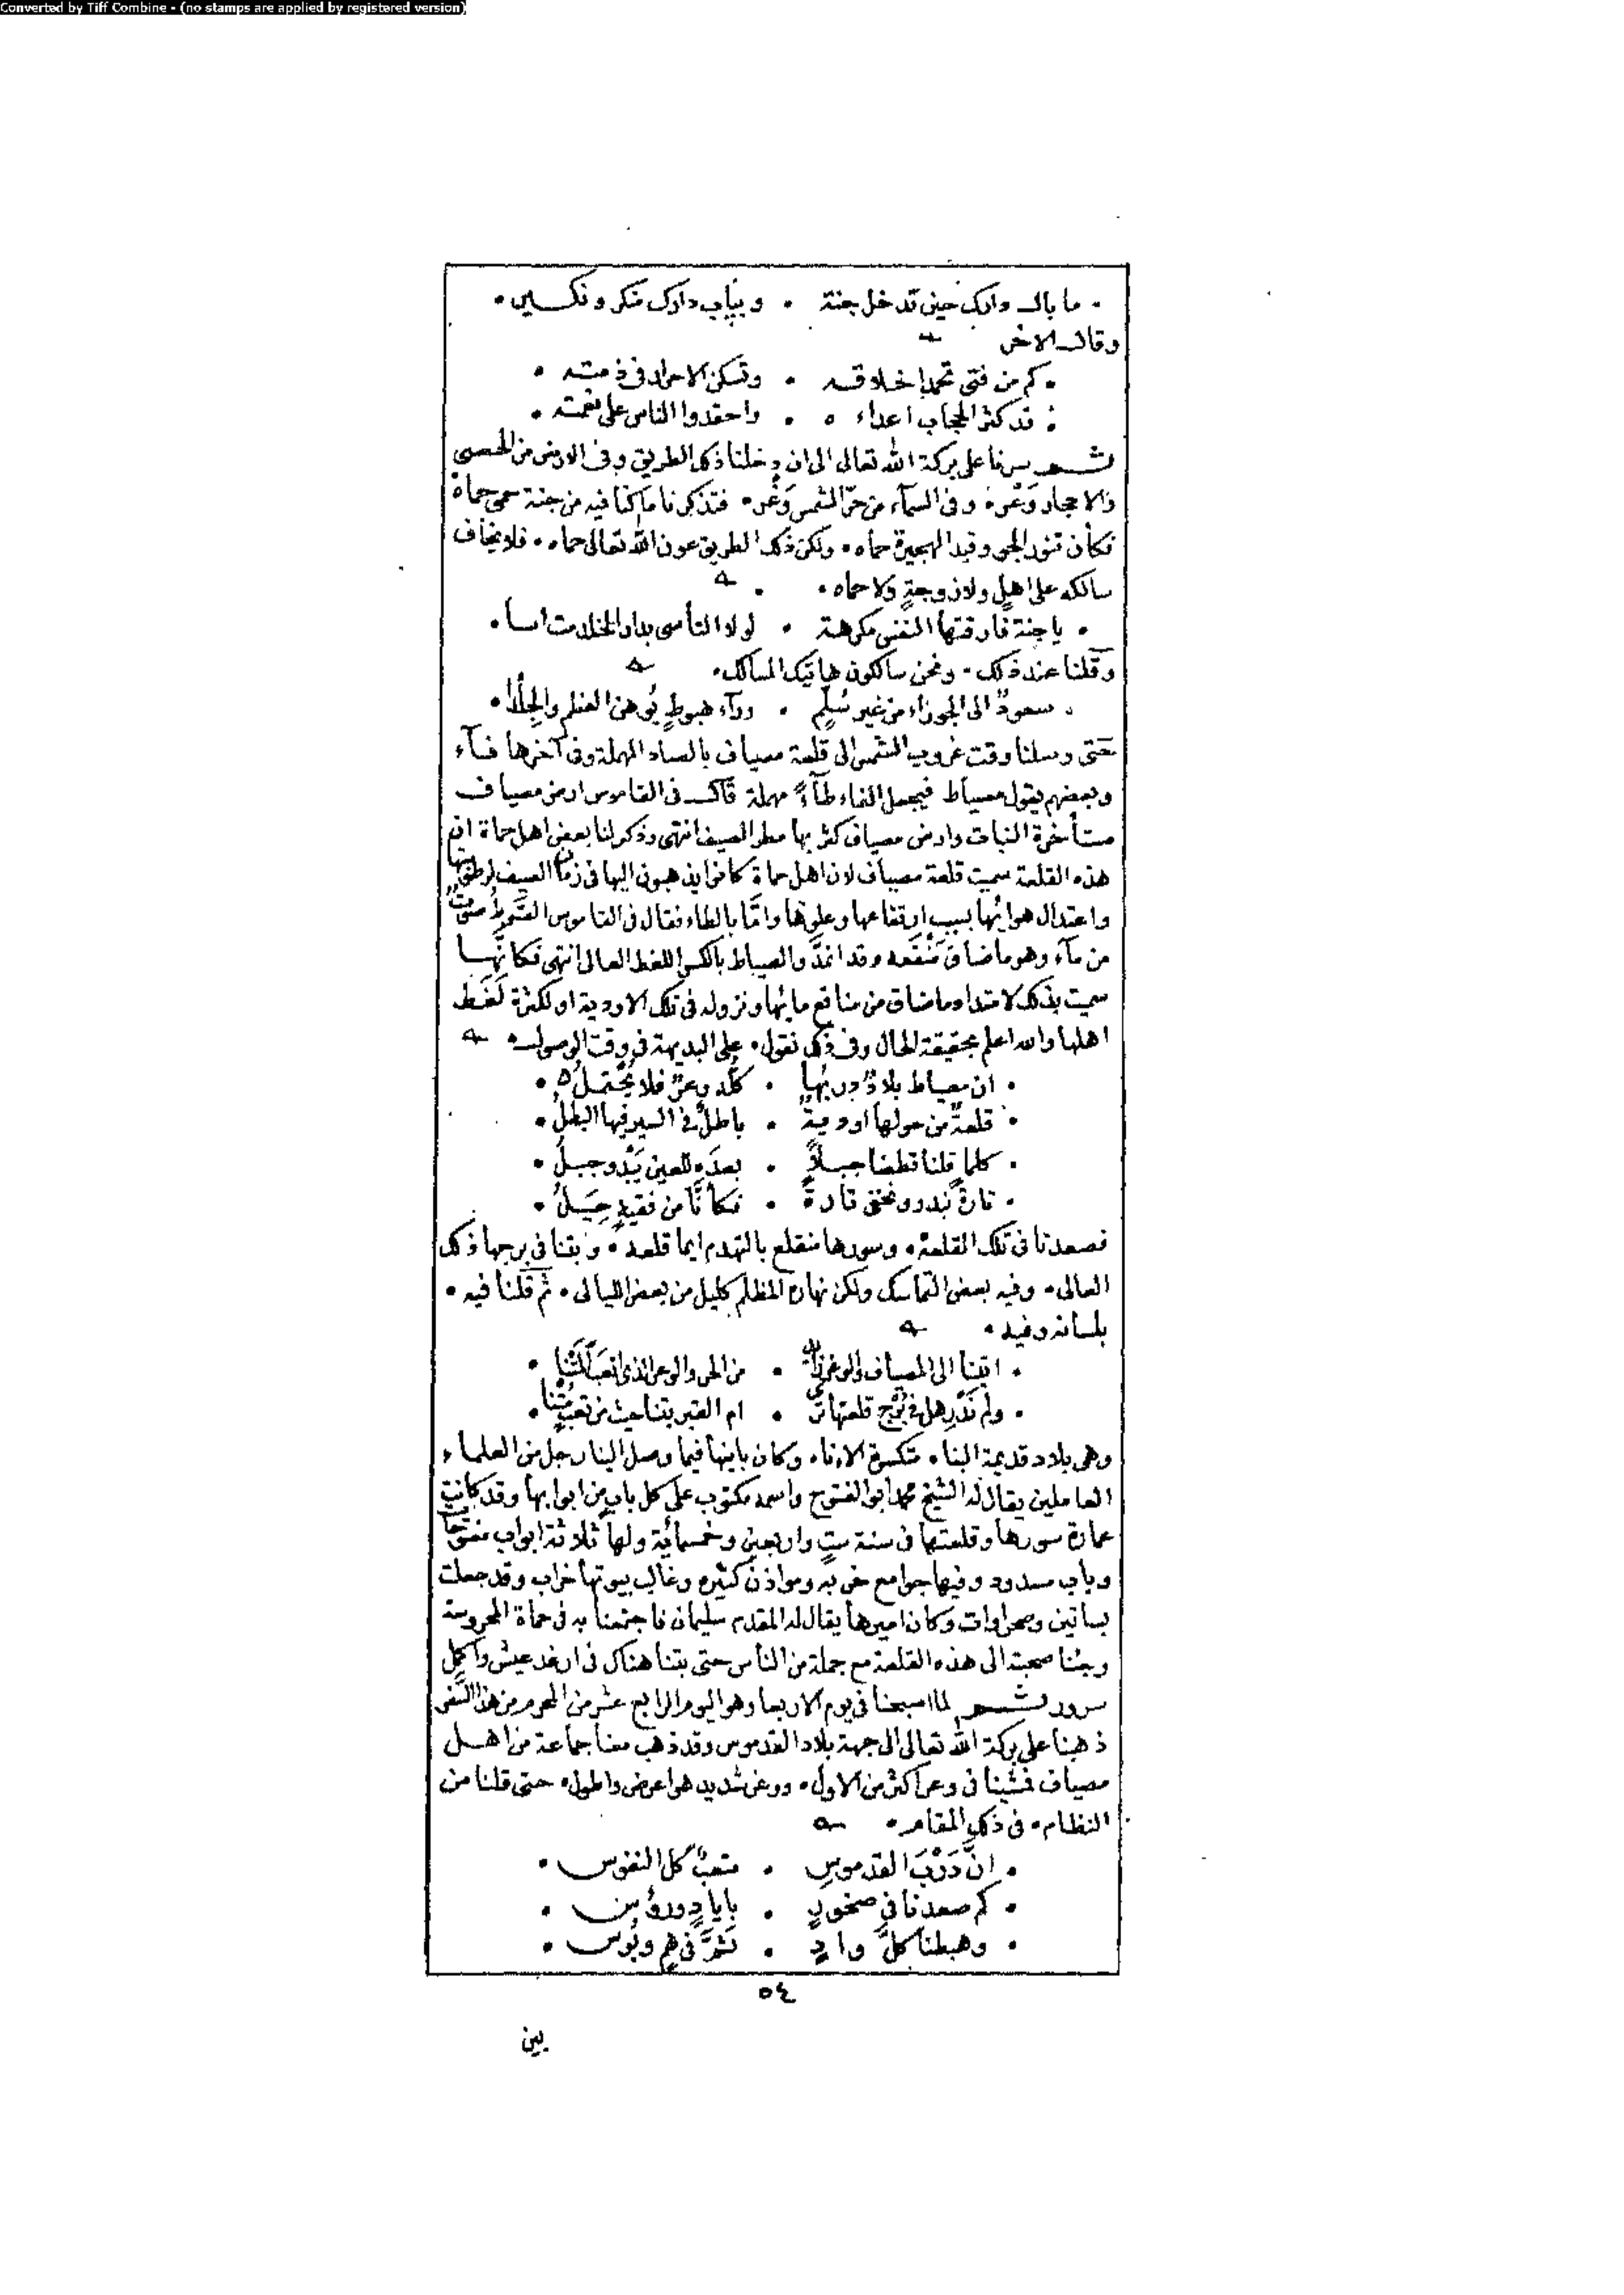 Converted by Tiff Combine - (no stamps are applied by registered version)
• ما بال دارك حين تدخل جنة • وبباب دارك منكر ونكير •
وقال الاخر
• كم من فتى تحمد اخلاقه • وتسكن الاحرار في ذمته •
• قد كثر الحجاب اعداءه • واحقدوا الناس على نعمته •
ثم سرنا على بركة الله تعالى الى ان دخلنا ذلك الطريق وفي الارض من الحصى
والاحجار وَعْر • وفي السمآء من حرّ الشمس وَغْر • فتذكرنا ما كنا فيه من جنة حمى حماة
فكأن تنور الجو وقيد الهجيرة حماه • ولكن ذلك الطريق عون الله تعالى حماه • فلا يخاف
سالكه على اهلٍ ولا زوجةٍ ولا حماه •
• يا جنة فارقتها النفس مكرهة • لولا التأسى بدار الخلد مت اسا •
وقلنا عند ذلك • ونحن سالكون هاتيك المسالك •
• صعودٌ الى الجوزاء من غير سُلّمٍ • ورآء هبوطٍ يُوهن العظم والجِلْدا •
حتى وصلنا وقت غروب الشمس الى قلعة مصياف بالصاد المهملة وفي آخرها فآء
وبعضهم يقول مصياط فيجعل الفاء طآءً مهملة قال في القاموس ارض مصياف
مستأخرة النبات وارض مصياف كثر بها مطر الصيف انتهى وذكر لنا بعض اهل حماة ان
هذه القلعة سميت قلعة مصياف لان اهل حماة كانوا يذهبون اليها في زمان الصيف لرطوبتها
واعتدال هوائها بسبب ارتفاعها وعلوّها وامّا بالطاء فقال في القاموس
من مآء وهو ما ضاق مَنْقَعه وقد امتدّ والصياط بالكسر اللغط العالى انتهى فكأنّها
سميت بذلك لامتداد ما ضاق من مناقع مائها ونزوله في تلك الاودية او لكثرة لَغَط
اهلها والله اعلم بحقيقة الحال وفي ذلك نقول • على البديهة في وقت الوصول •
• ان مصياط بلادٌ دربُها • كلّه وعرٌ فلا يُحْتملُ •
• قلعةٌ من حولها اوديةٌ • باطلٌ في السير فيها البطلُ •
• كلما قلنا قطعنا جبلاً • بعدَه للعين يَبْدو جبلُ •
• تارةً نبدو ونخفى تارةً • فكأنّا من فقيهٍ حِيَلُ •
فصعدنا في تلك القلعة • وسورها منقلع بالتهدم ايما قلعه • وبتنا في برجها ذلك
العالى • وفيه بعض التماسك ولكن نهاره المظلم كليل من بعض الليالى • ثم قلنا فيه •
بلسانه وفيه •
• اتينا الى المصياف والوعر • من الحر والوعر الذى اتعب
• ولم نَدْرِ هل في بُرْج قلعتها • ام القبر بتنا حيث من تعبٍ مُتْنا •
وهي بلاد قديمة البناء متكسرة الاناء وكان بانيها فيما وصل الينا رجل من العلماء
العاملين يقال له الشيخ محمد ابو الفتوح واسمه مكتوب على كل بابٍ من ابوابها وقد كانت
عمارة سورها وقلعتها في سنة ستٍ واربعين وخمسمائة ولها ثلاثة ابواب مفتوحة
وباب مسدود وفيها جوامع خربه ومواذن كثيره وغالب بيوتها خراب وقد جعلت
بساتين وصحراوات وكان اميرها يقال له المقدم سليمان فاجتمعنا به في حماة المحروسة
وجئنا صحبته الى هذه القلعة مع جملة من الناس حتى بتنا هناك في ارغد عيش واكمل
سرور ثم لما اصبحنا في يوم الاربعا وهو اليوم الرابع عشر من المحرم من هذا السفر
ذهبنا على بركة الله تعالى الى جهة بلاد القدموس وقد ذهب معنا جماعة من اهل
مصياف فمشينا في وعر اكثر من الاول • ووعر شديد هو اعرض واطول • حتى قلنا من
النظام • في ذلك المقام •
• انّ دَرْبَ القدموسِ • متعبٌ كل النفوس •
• كم صعدنا في صخورٍ • بايادٍ ورؤس •
• وهبطنا كلَّ وادٍ • ثَمَّ في همٍ وبُوس •
٥٤
بين